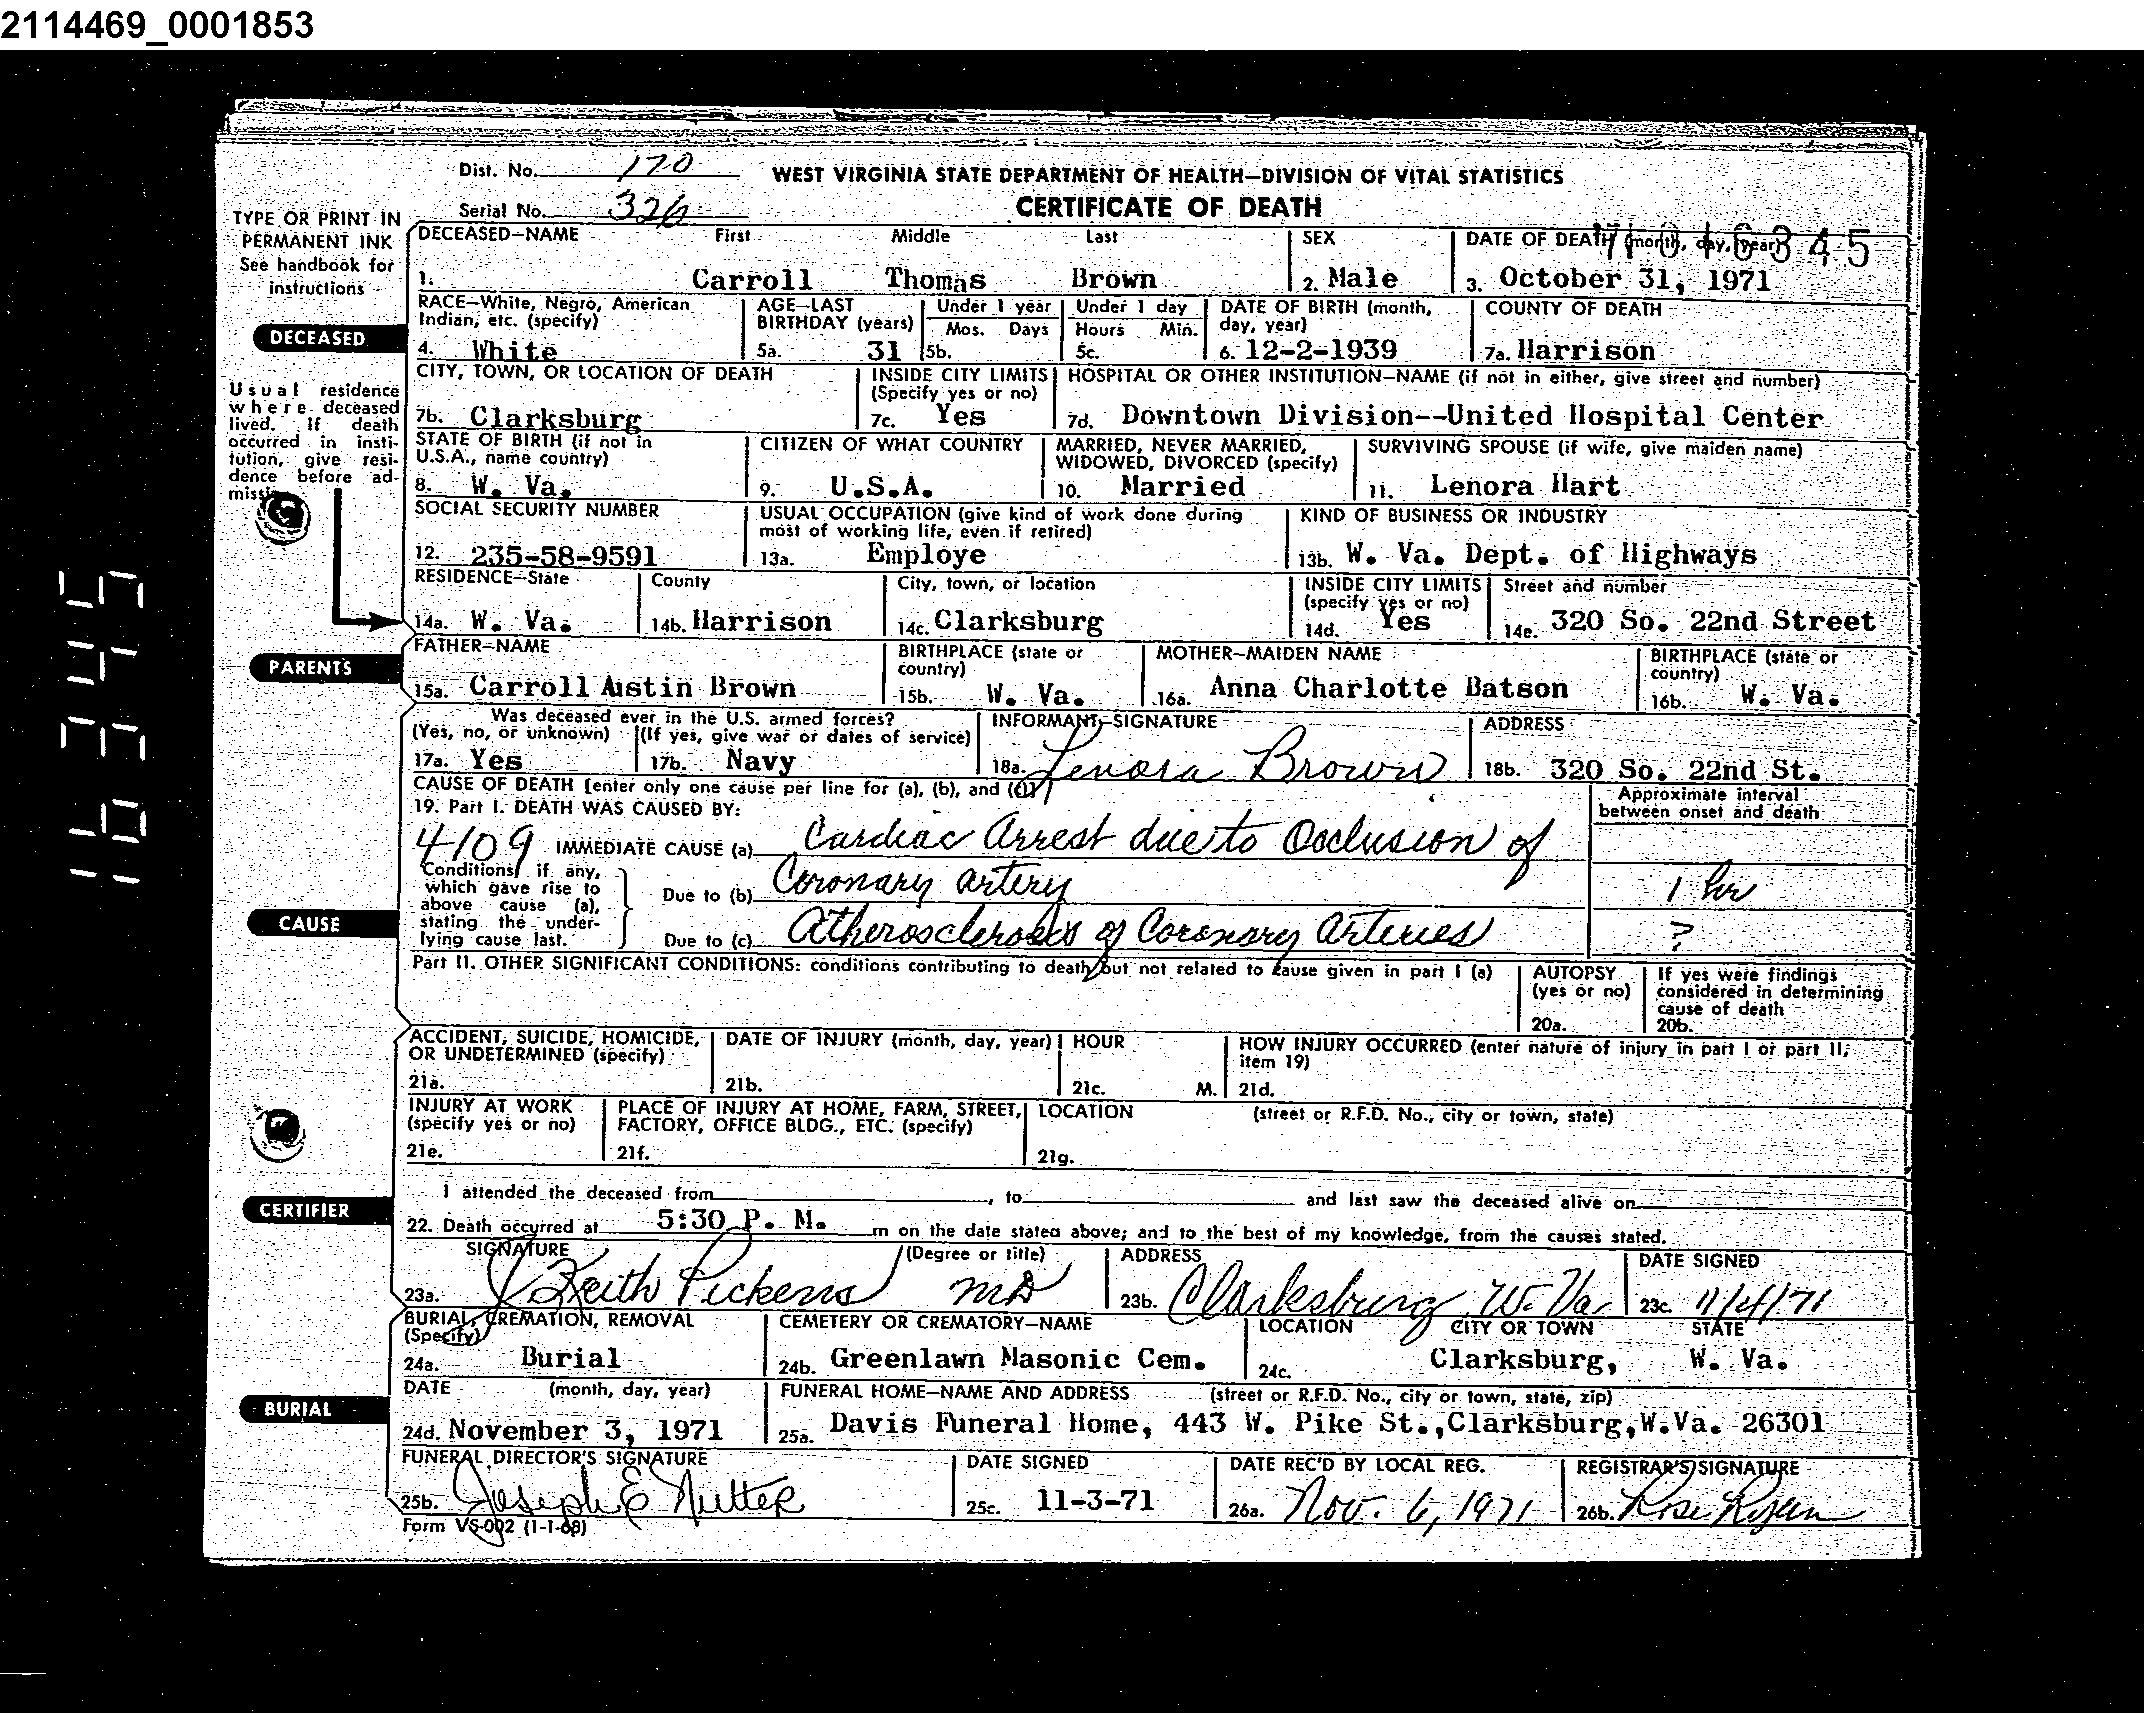 2114469_0001853
Dist. No. 170 WEST VIRGINIA STATE DEPARTMENT OF HEALTH—DIVISION OF VITAL STATISTICS
Serial No. 326 CERTIFICATE OF DEATH
TYPE OR PRINT IN
PERMANENT INK
See handbook for
instructions
DECEASED—NAME First Middle Last SEX DATE OF DEATH (month, day, year)
1. Carroll Thomas Brown 2. Male 3. October 31, 1971
RACE—White, Negro, American Indian, etc. (specify) AGE—LAST BIRTHDAY (years) Under 1 year Mos. Days Under 1 day Hours Min. DATE OF BIRTH (month, day, year) COUNTY OF DEATH
DECEASED
4. White 5a. 31 5b. 5c. 6. 12-2-1939 7a. Harrison
CITY, TOWN, OR LOCATION OF DEATH INSIDE CITY LIMITS (Specify yes or no) HOSPITAL OR OTHER INSTITUTION—NAME (if not in either, give street and number)
7b. Clarksburg 7c. Yes 7d. Downtown Division--United Hospital Center
Usual residence
where deceased
lived. If death
occurred in insti-
tution, give resi-
dence before ad-
STATE OF BIRTH (if not in U.S.A., name country) CITIZEN OF WHAT COUNTRY MARRIED, NEVER MARRIED, WIDOWED, DIVORCED (specify) SURVIVING SPOUSE (if wife, give maiden name)
8. W. Va. 9. U.S.A. 10. Married 11. Lenora Hart
SOCIAL SECURITY NUMBER USUAL OCCUPATION (give kind of work done during most of working life, even if retired) KIND OF BUSINESS OR INDUSTRY
12. 235-58-9591 13a. Employe 13b. W. Va. Dept. of Highways
RESIDENCE—State County City, town, or location INSIDE CITY LIMITS (specify yes or no) Street and number
14a. W. Va. 14b. Harrison 14c. Clarksburg 14d. Yes 14e. 320 So. 22nd Street
PARENTS
FATHER—NAME BIRTHPLACE (state or country) MOTHER—MAIDEN NAME BIRTHPLACE (state or country)
15a. Carroll Austin Brown 15b. W. Va. 16a. Anna Charlotte Batson 16b. W. Va.
Was deceased ever in the U.S. armed forces? INFORMANT—SIGNATURE ADDRESS
(Yes, no, or unknown) (If yes, give war or dates of service)
17a. Yes 17b. Navy 18a. Lenora Brown 18b. 320 So. 22nd St.
CAUSE OF DEATH [enter only one cause per line for (a), (b), and (c)]
19. Part I. DEATH WAS CAUSED BY: Approximate interval between onset and death
4109 IMMEDIATE CAUSE (a) Cardiac Arrest due to Occlusion of
Conditions, if any, which gave rise to above cause (a), stating the underlying cause last.
Due to (b) Coronary artery 1 hr
CAUSE
Due to (c) Atherosclerosis of Coronary Arteries ?
Part II. OTHER SIGNIFICANT CONDITIONS: conditions contributing to death but not related to cause given in part I (a) AUTOPSY (yes or no) If yes were findings considered in determining cause of death
20a. 20b.
ACCIDENT, SUICIDE, HOMICIDE, OR UNDETERMINED (specify) DATE OF INJURY (month, day, year) HOUR HOW INJURY OCCURRED (enter nature of injury in part I or part II, item 19)
21a. 21b. 21c. M. 21d.
INJURY AT WORK (specify yes or no) PLACE OF INJURY AT HOME, FARM, STREET, FACTORY, OFFICE BLDG., ETC. (specify) LOCATION (street or R.F.D. No., city or town, state)
21e. 21f. 21g.
CERTIFIER
I attended the deceased from , to and last saw the deceased alive on
22. Death occurred at 5:30 P. M. m on the date stated above; and to the best of my knowledge, from the causes stated.
SIGNATURE (Degree or title) ADDRESS DATE SIGNED
23a. J Keith Pickens MD 23b. Clarksburg W. Va. 23c. 11/4/71
BURIAL, CREMATION, REMOVAL (Specify) CEMETERY OR CREMATORY—NAME LOCATION CITY OR TOWN STATE
24a. Burial 24b. Greenlawn Masonic Cem. 24c. Clarksburg, W. Va.
BURIAL
DATE (month, day, year) FUNERAL HOME—NAME AND ADDRESS (street or R.F.D. No., city or town, state, zip)
24d. November 3, 1971 25a. Davis Funeral Home, 443 W. Pike St.,Clarksburg,W.Va. 26301
FUNERAL DIRECTOR'S SIGNATURE DATE SIGNED DATE REC'D BY LOCAL REG. REGISTRAR'S SIGNATURE
25b. Joseph E Nutter 25c. 11-3-71 26a. Nov. 6, 1971 26b. Rose
Form VS-002 (1-1-68)
16345